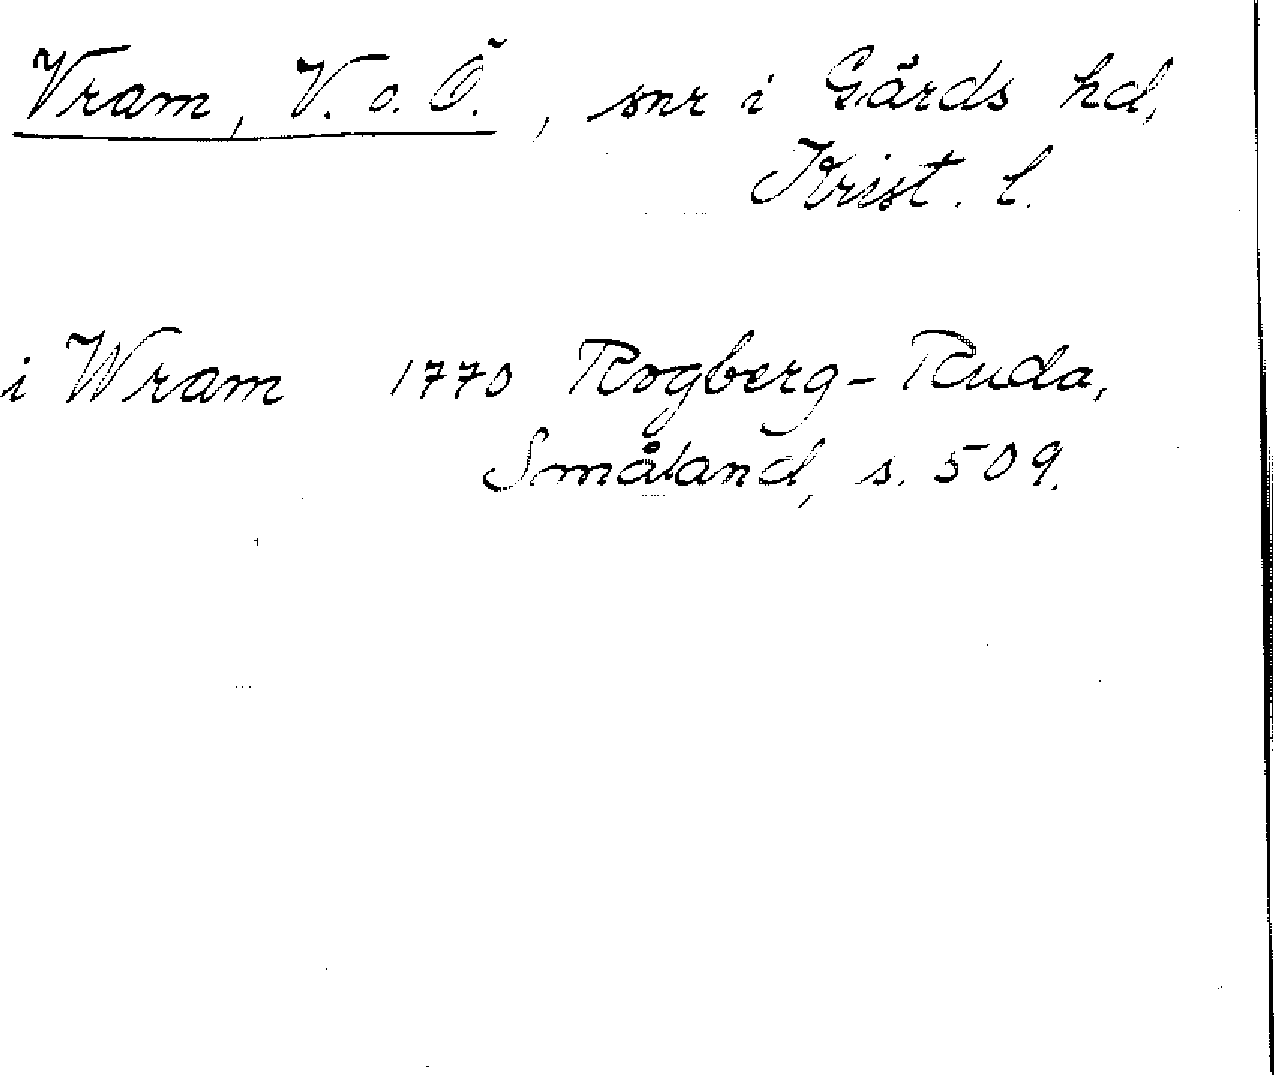 Vram, V. o. Ö., snr i Gärds hd,
Krist. l.
i Wram 1770 Rogberg-Ruda,
Småland, s. 509.